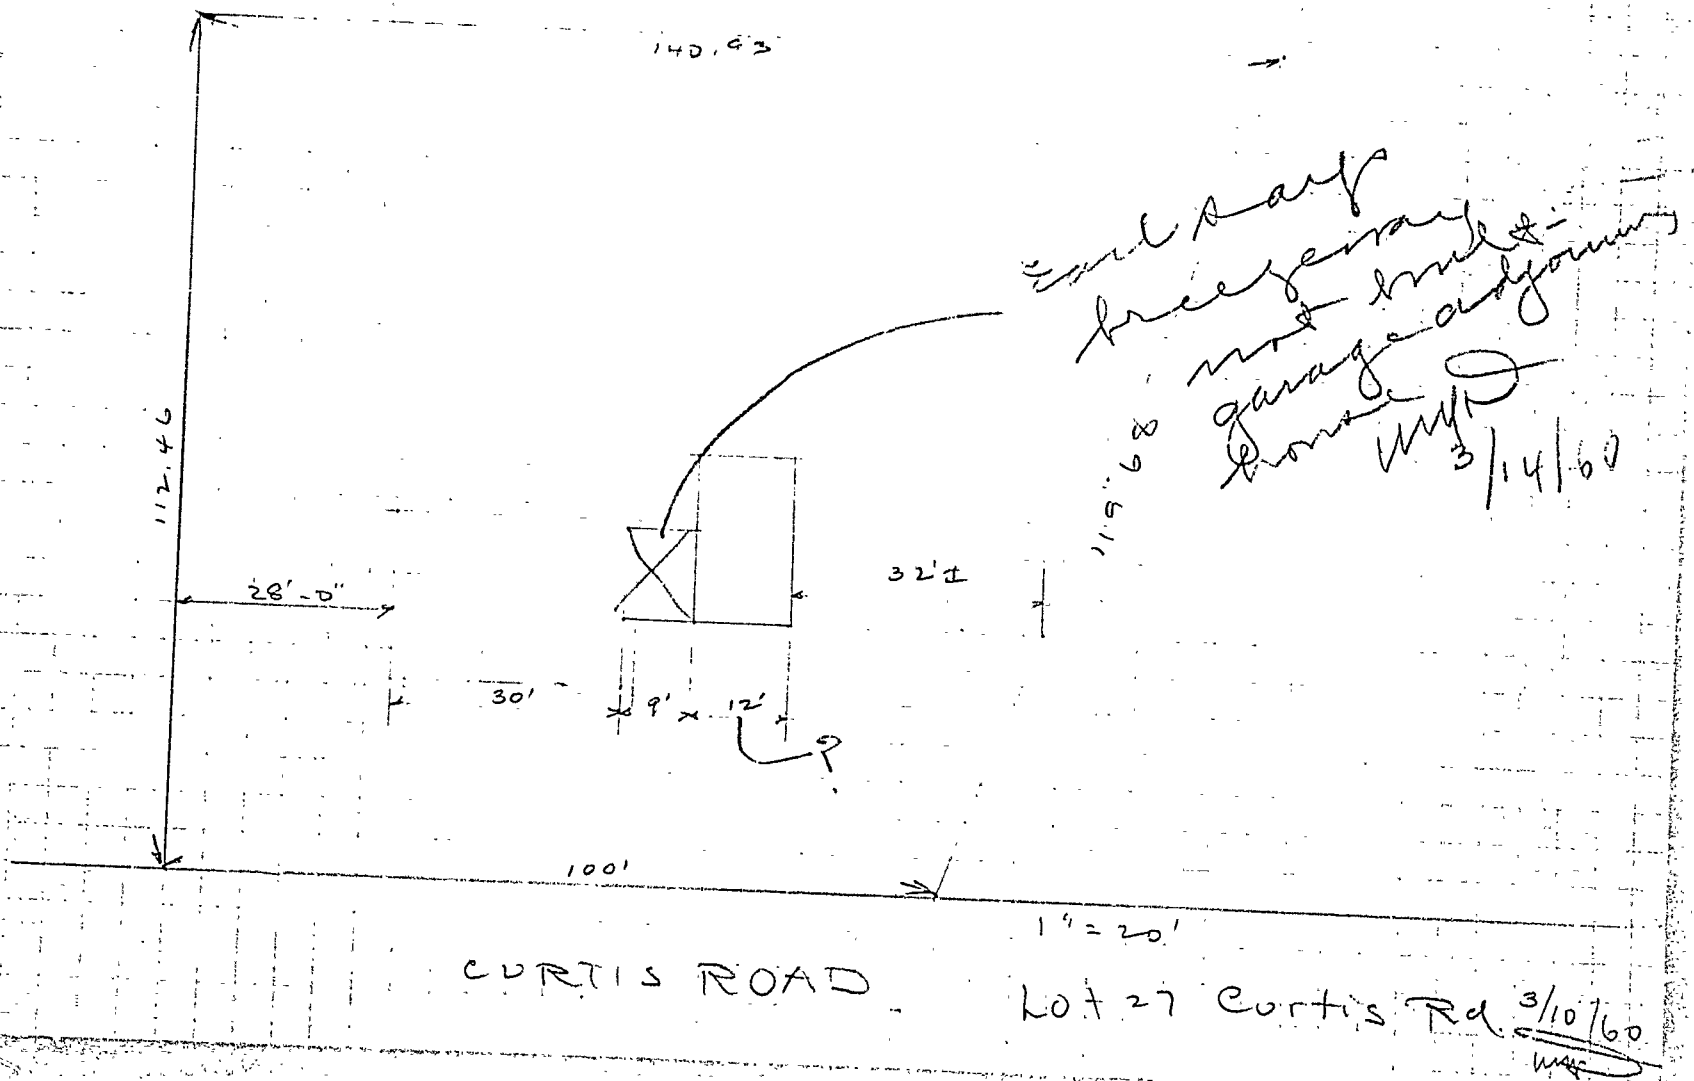 140.93
Earl says
breezeway
not built -
garage adjoining
house
3/14/60
112.46
119.68
28'-0"
32'±
30'
9'
12'
?
100'
1"=20'
CURTIS ROAD
Lot 27 Curtis Rd. 3/10/60